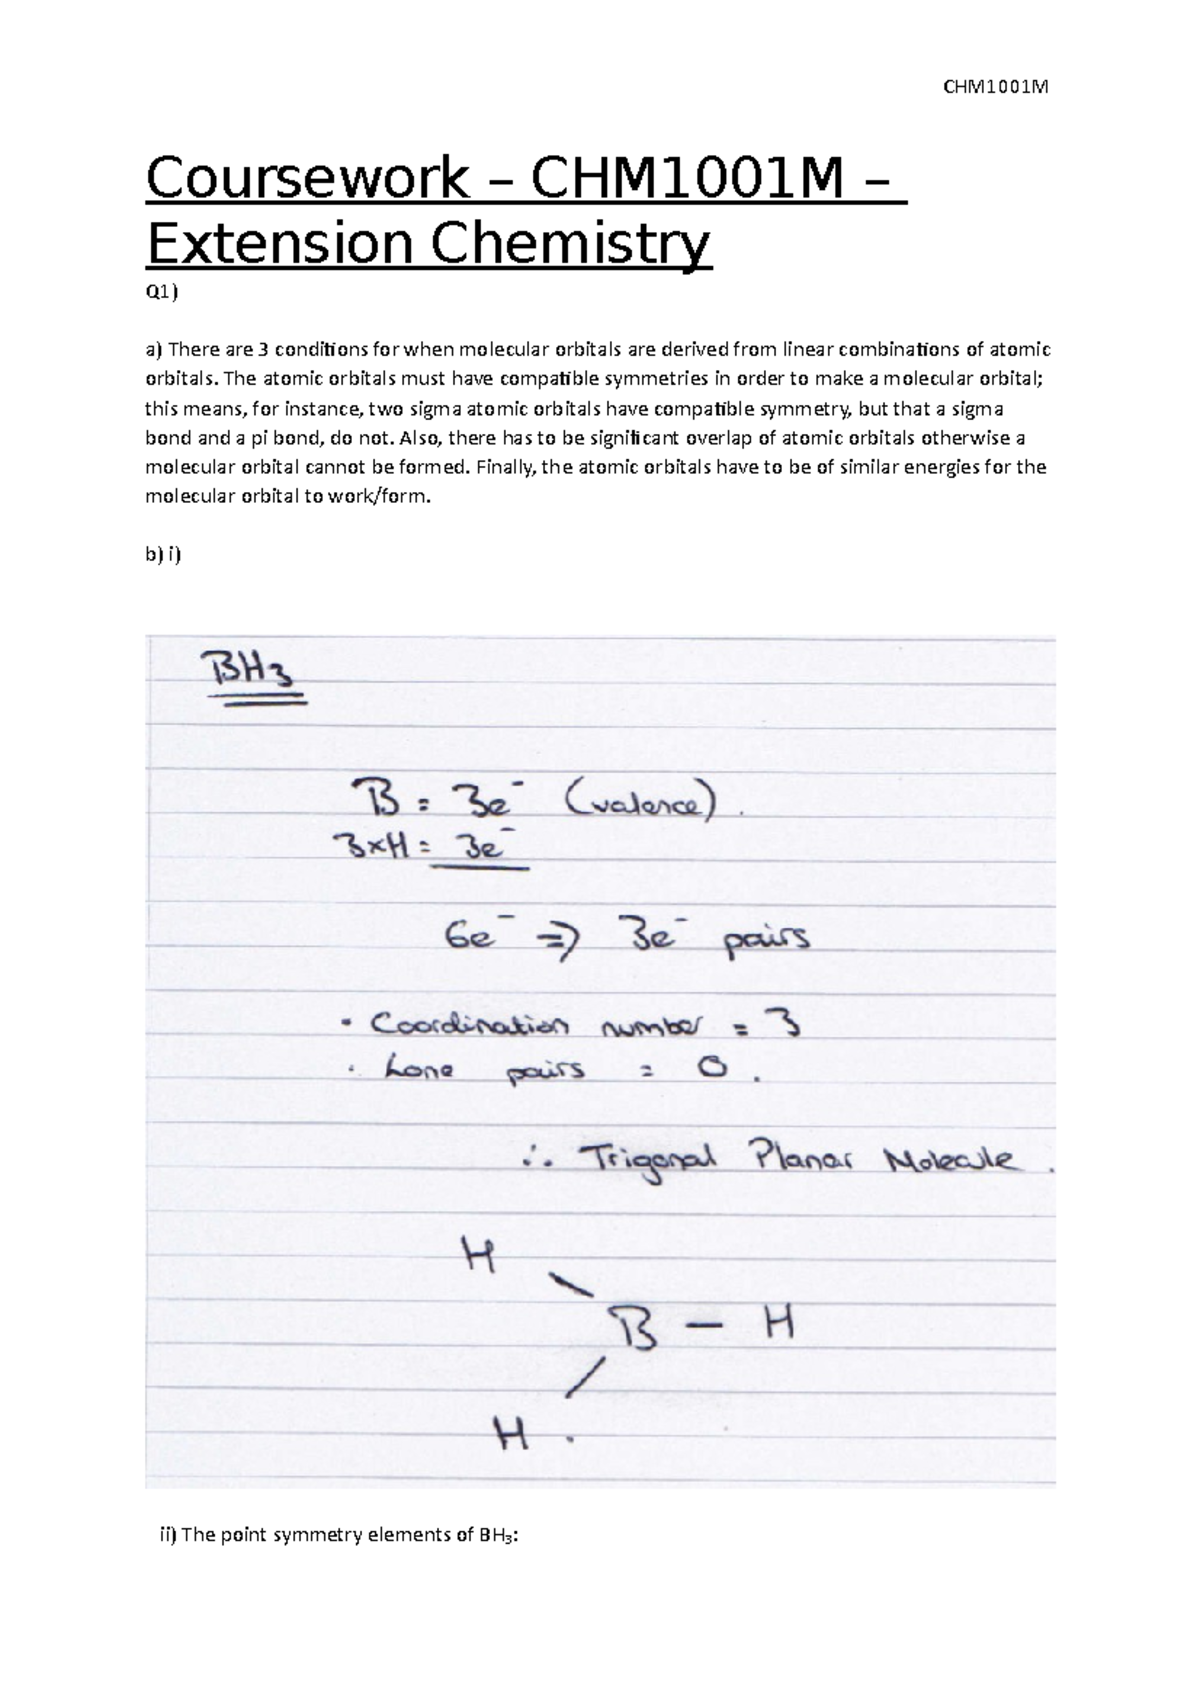 CHM1001M
Coursework – CHM1001M –
Extension Chemistry
Q1)
a) There are 3 conditions for when molecular orbitals are derived from linear combinations of atomic
orbitals. The atomic orbitals must have compatible symmetries in order to make a molecular orbital;
this means, for instance, two sigma atomic orbitals have compatible symmetry, but that a sigma
bond and a pi bond, do not. Also, there has to be significant overlap of atomic orbitals otherwise a
molecular orbital cannot be formed. Finally, the atomic orbitals have to be of similar energies for the
molecular orbital to work/form.
b) i)
BH₃
B = 3e⁻ (valence).
3×H = 3e⁻
6e⁻ => 3e⁻ pairs
• Coordination number = 3
• Lone pairs = 0.
∴ Trigonal Planar Molecule.
H
B – H
H.
ii) The point symmetry elements of BH₃: